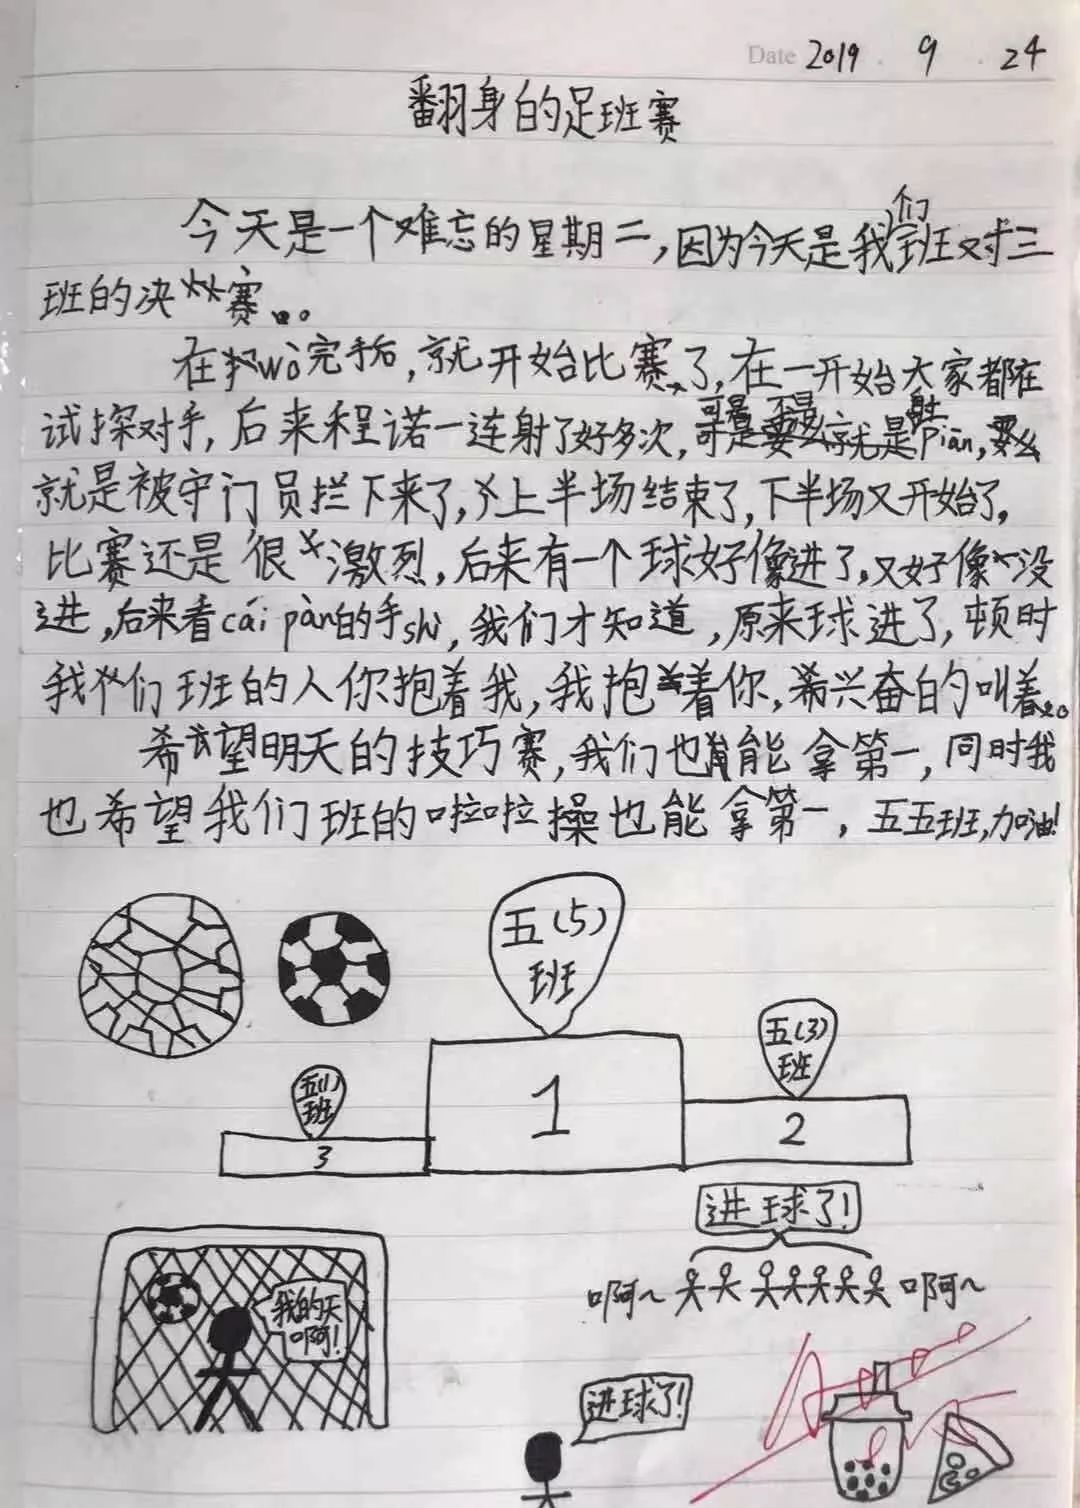 Date 2019 . 9 . 24
翻身的足班赛
今天是一个难忘的星期二,因为今天是我们班对三
班的决赛。
在握wò完手后,就开始比赛了,在一开始大家都在
试探对手,后来程诺一连射了好多次,可是不是射piān,要么
就是被守门员拦下来了,上半场结束了,下半场又开始了,
比赛还是很激烈,后来有一个球好像进了,又好像没
进,后来看cái pàn的手shì,我们才知道,原来球进了,顿时
我们班的人你抱着我,我抱着你,兴奋的叫着。
希望明天的技巧赛,我们也能拿第一,同时我
也希望我们班的啦啦操也能拿第一,五五班,加油!
五(5)
班
五(3)
班
五(1)
班
1
2
3
进球了!
啊~ 啊~
我的天
啊!
进球了!